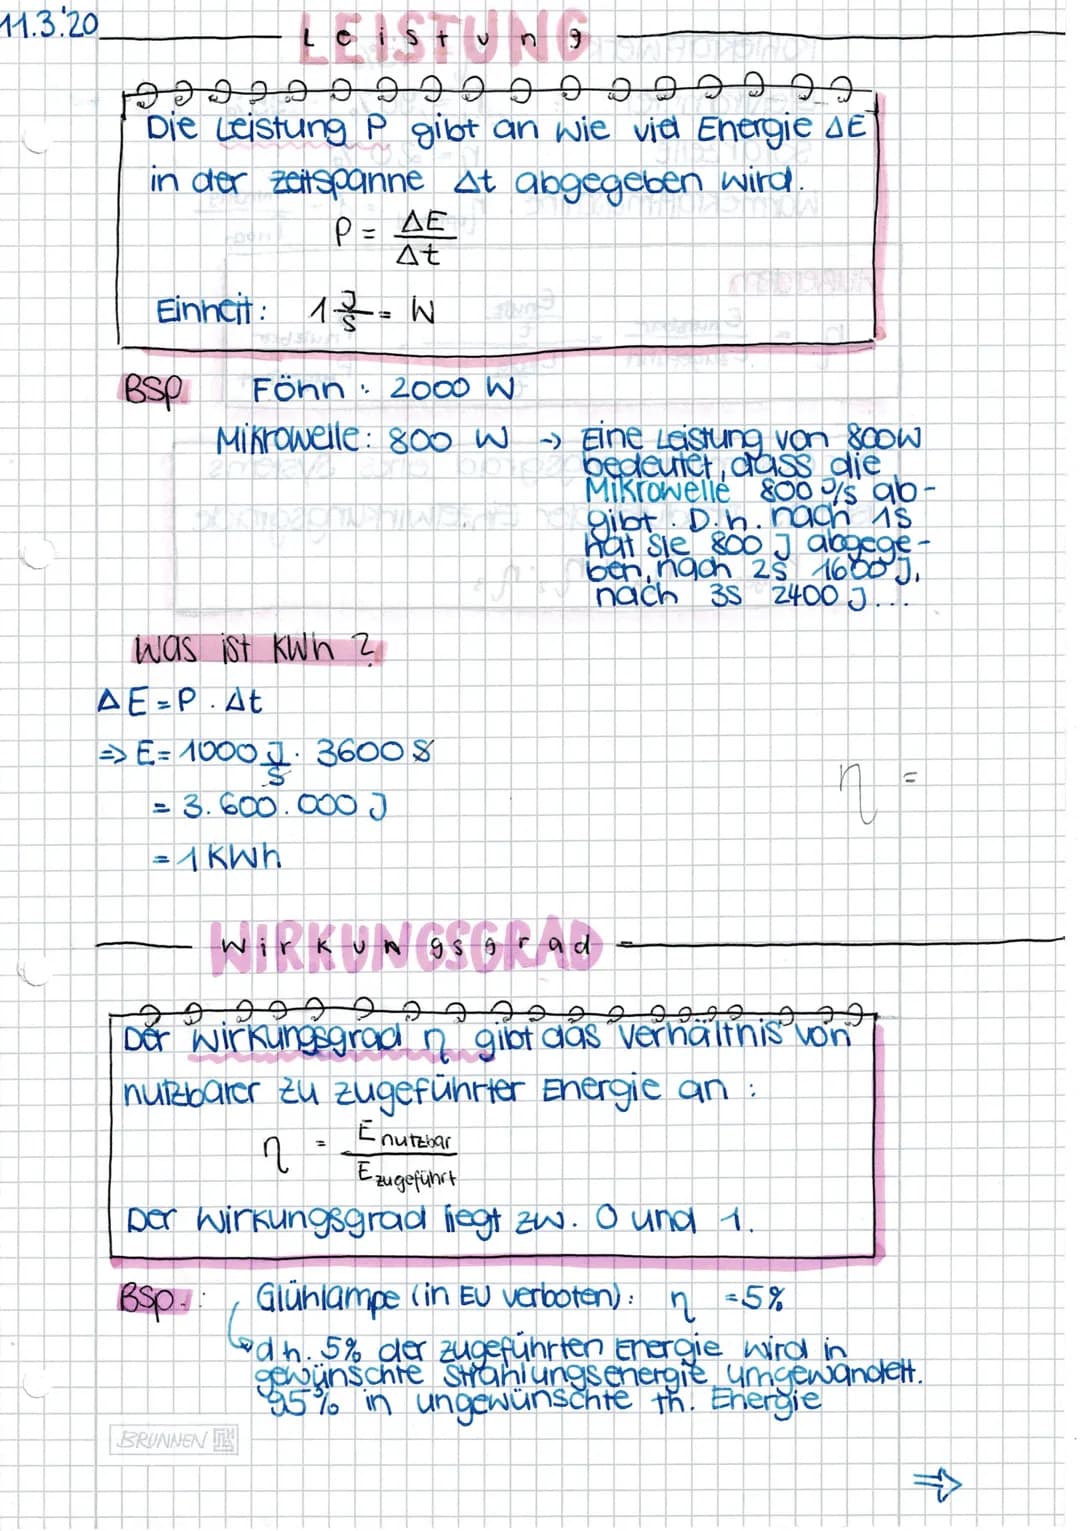 11.3.'20
Leistung
Die Leistung P gibt an wie viel Energie ΔE
in der Zeitspanne Δt abgegeben wird.
P = ΔE / Δt
Einheit: 1 J/s = W
BSP Fönn: 2000 W
Mikrowelle: 800 W → Eine Leistung von 800W
bedeutet, dass die
Mikrowelle 800 J/s ab-
gibt. D.h. nach 1s
hat sie 800 J abgege-
ben, nach 2s 1600 J,
nach 3s 2400 J...
Was ist kWh?
ΔE = P · Δt
⇒ E = 1000 J/s · 3600 s
= 3.600.000 J
= 1 kWh
η =
Wirkungsgrad
Der Wirkungsgrad η gibt das Verhältnis von
nutzbarer zu zugeführter Energie an:
η = E nutzbar / E zugeführt
Der Wirkungsgrad liegt zw. 0 und 1.
BSP.: Glühlampe (in EU verboten): η = 5%
d.h. 5% der zugeführten Energie wird in
gewünschte Strahlungsenergie umgewandelt.
95% in ungewünschte th. Energie
BRUNNEN
⇒